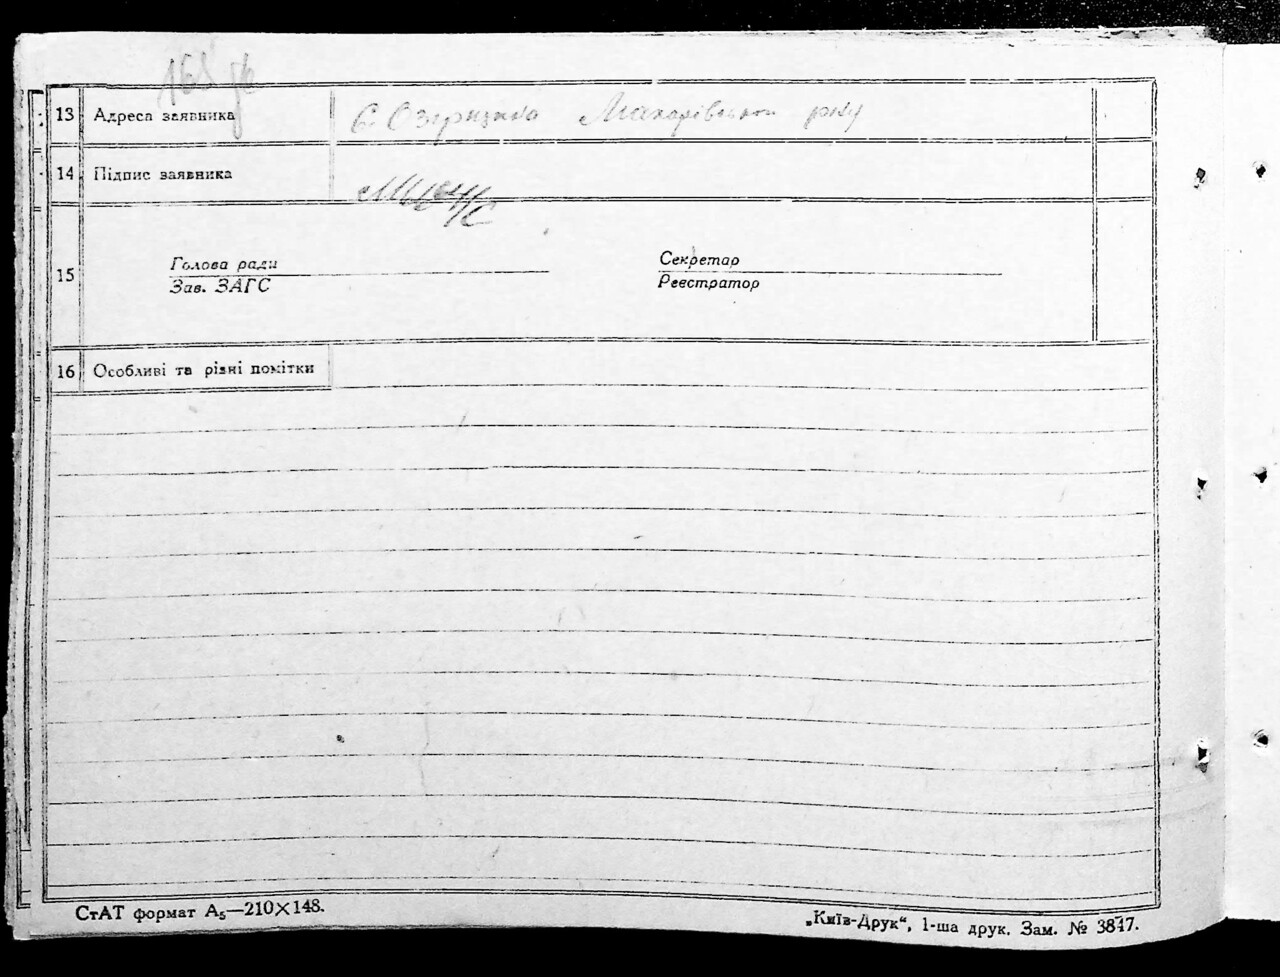 168
13 Адреса заявника с. Озірщина Макарівського р-ну
14 Підпис заявника
15 Голова ради Секретар
Зав. ЗАГС Реєстратор
16 Особливі та різні помітки
СтАТ формат А5—210×148.
„Київ-Друк“, 1-ша друк. Зам. № 3847.